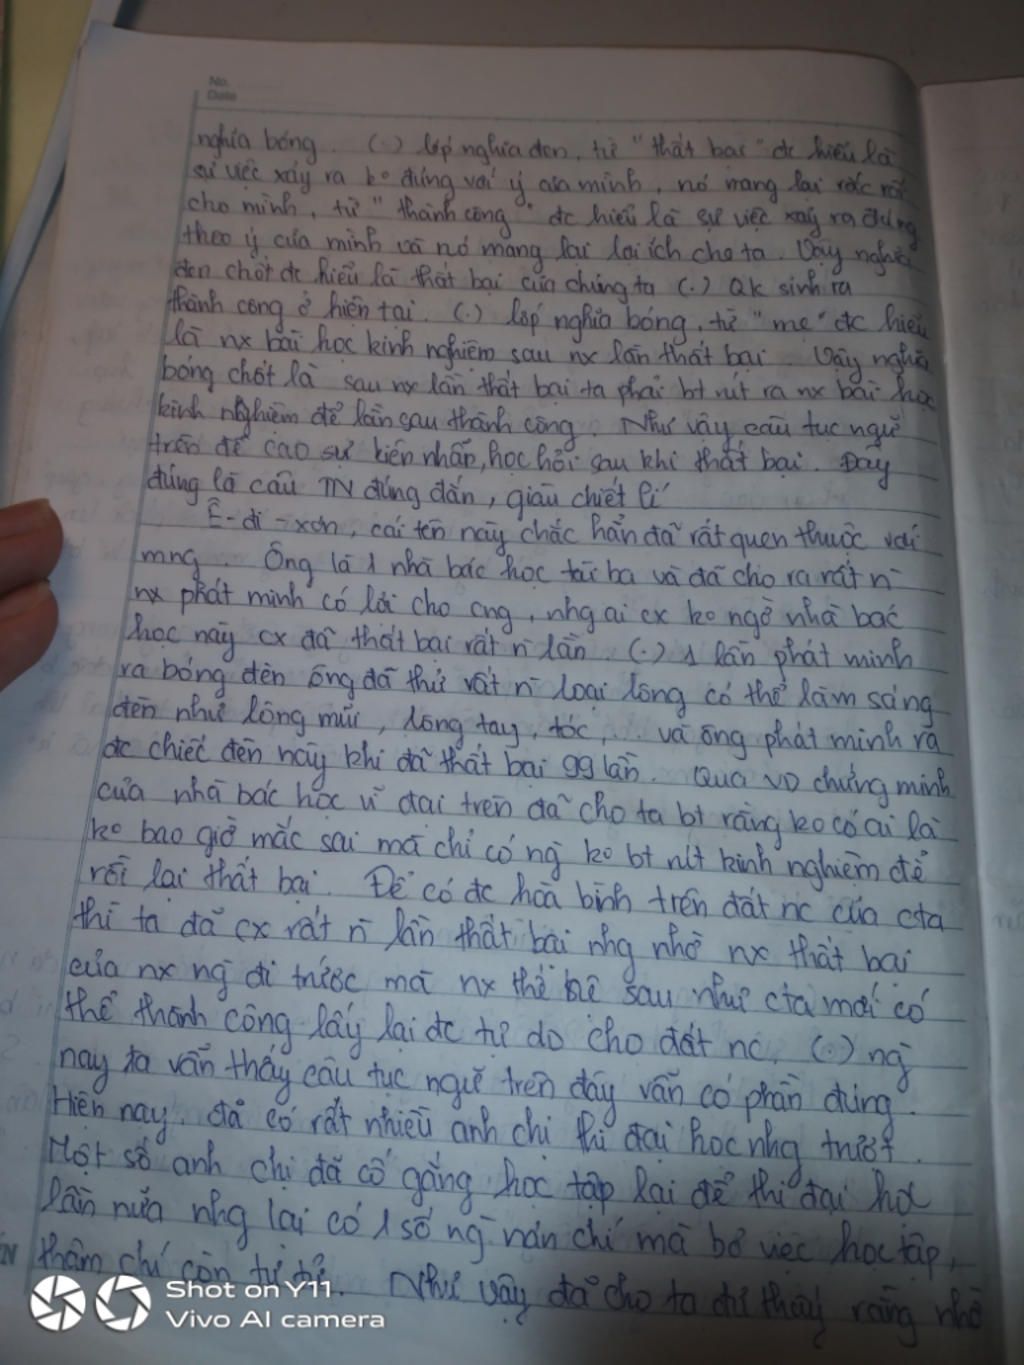 No.
Date
nghĩa bóng. (.) lớp nghĩa đen, từ "thất bại" đc hiểu là
sự việc xảy ra ko đúng với ý của mình, nó mang lại rắc rối
cho mình, từ "thành công" đc hiểu là sự việc xảy ra đúng
theo ý của mình và nó mang lại lợi ích cho ta. Vậy nghĩa
đen chốt đc hiểu là thất bại của chúng ta (.) Qk sinh ra
thành công ở hiện tại. (.) lớp nghĩa bóng, từ "mẹ" đc hiểu
là nx bài học kinh nghiệm sau nx lần thất bại. Vậy nghĩa
bóng chốt là sau nx lần thất bại ta phải bt rút ra nx bài học
kinh nghiệm để lần sau thành công. Như vậy câu tục ngữ
trên đề cao sự kiên nhẫn, học hỏi sau khi thất bại. Đây
đúng là câu TN đúng đắn, giàu chiết lí
Ê-đi-xơn, cái tên này chắc hẳn đã rất quen thuộc với
mng. Ông là 1 nhà bác học tài ba và đã cho ra rất n̄
nx phát minh có lời cho cng, nhg ai cx ko ngờ nhà bác
học này cx đã thất bại rất n̄ lần. (.) 1 lần phát minh
ra bóng đèn ông đã thử rất n̄ loại lông có thể làm sáng
đèn như lông mũi, lông tay, tóc, ... và ông phát minh ra
đc chiếc đèn này khi đã thất bại 99 lần. Qua VD chứng minh
của nhà bác học vĩ đại trên đã cho ta bt rằng ko có ai là
ko bao giờ mắc sai mà chỉ có ng̀ ko bt rút kinh nghiệm để
rồi lại thất bại. Để có đc hoà bình trên đất nc của cta
thì ta đã cx rất n̄ lần thất bại nhg nhờ nx thất bại
của nx ng̀ đi trước mà nx thế hệ sau như cta mới có
thể thành công lấy lại đc tự do cho đất nc, (.) ng̀
nay ta vẫn thấy câu tục ngữ trên đây vẫn có phần đúng.
Hiện nay, đã có rất nhiều anh chị thi đại học nhg trượt.
Một số anh chị đã cố gắng học tập lại để thi đại học
lần nữa nhg lại có 1 số ng̀ nản chí mà bỏ việc học tập,
thậm chí còn tự tử. Như vậy đã cho ta thấy rằng nhờ
Shot on Y11
Vivo AI camera